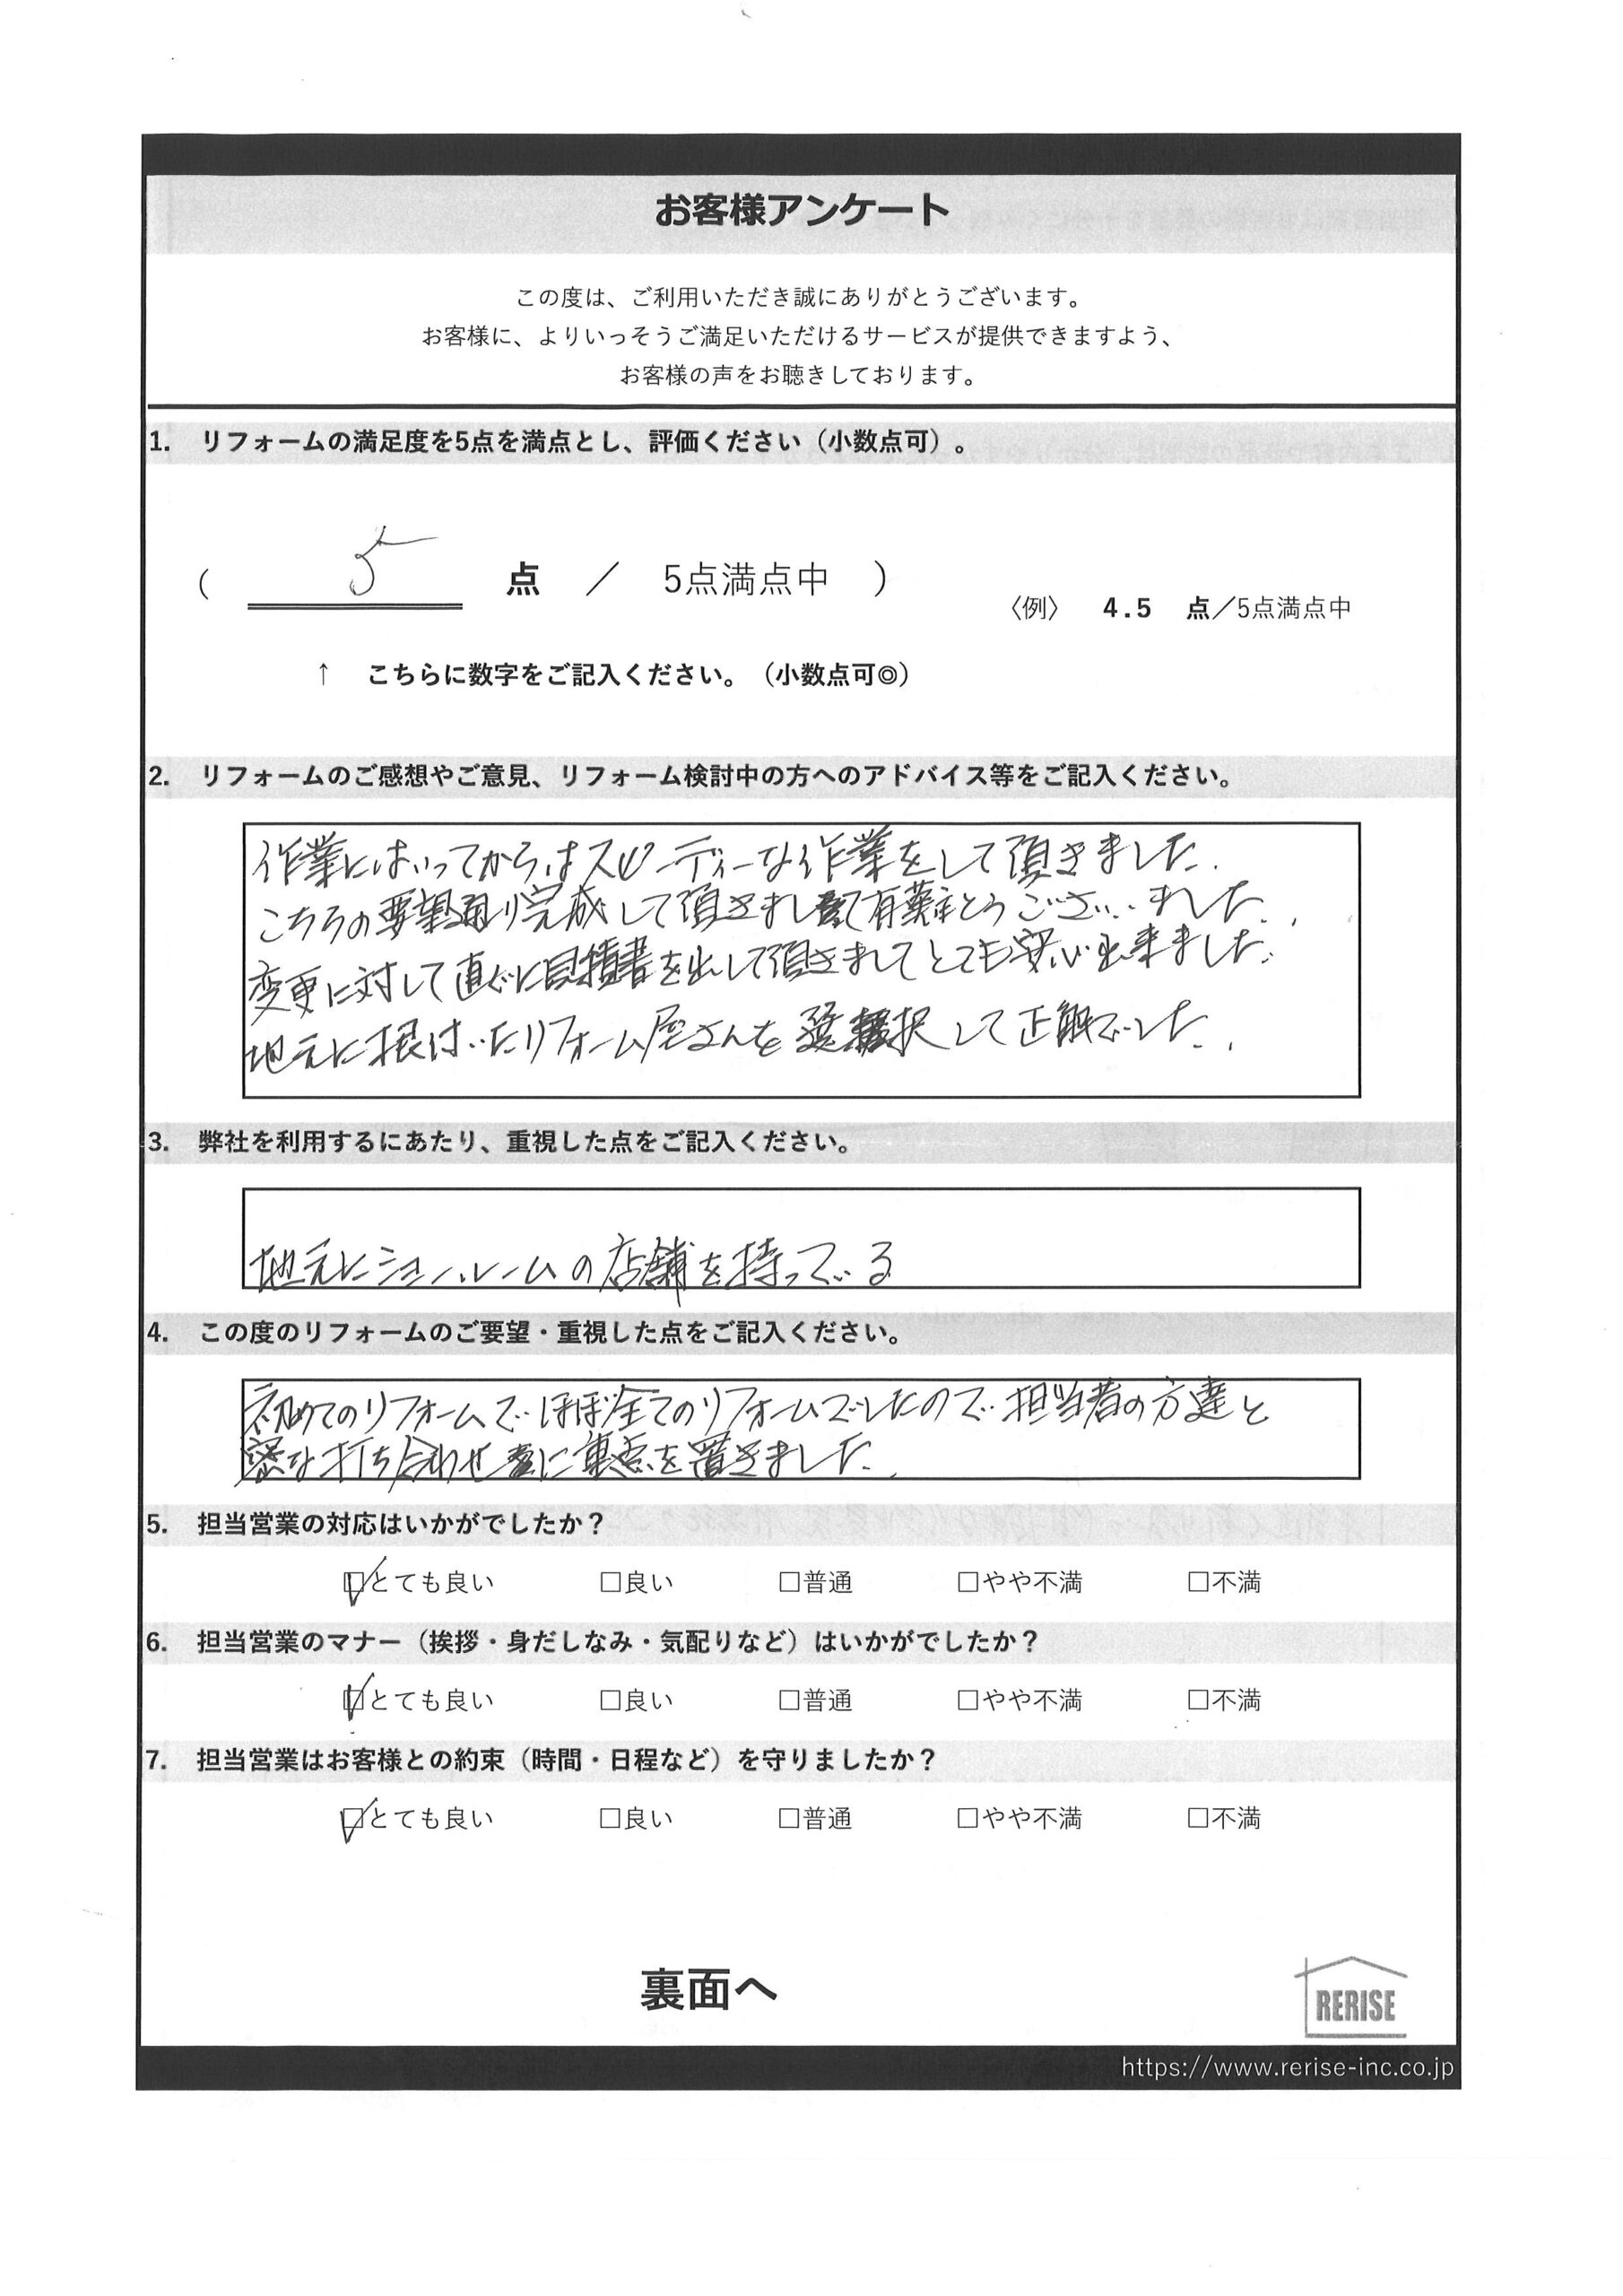 お客様アンケート
この度は、ご利用いただき誠にありがとうございます。
お客様に、よりいっそうご満足いただけるサービスが提供できますよう、
お客様の声をお聴きしております。
1. リフォームの満足度を5点を満点とし、評価ください（小数点可）。
（ 5 点 ／ 5点満点中 ）
〈例〉 4.5 点／5点満点中
↑ こちらに数字をご記入ください。（小数点可◎）
2. リフォームのご感想やご意見、リフォーム検討中の方へのアドバイス等をご記入ください。
作業にはいってからはスピーディーな作業をして頂きました.
こちらの要望通り完成して頂きまして有難とうございました.
変更に対して直ぐに見積書を出して頂きましてとても安心出来ました.
地元に根付いたリフォーム屋さんを選択して正解でした.
3. 弊社を利用するにあたり、重視した点をご記入ください。
地元にショールームの店舗を持っている
4. この度のリフォームのご要望・重視した点をご記入ください。
初めてのリフォームで ほぼ全てのリフォームでしたので 担当者の方達と
密な打ち合わせに重点を置きました.
5. 担当営業の対応はいかがでしたか？
☑とても良い □良い □普通 □やや不満 □不満
6. 担当営業のマナー（挨拶・身だしなみ・気配りなど）はいかがでしたか？
☑とても良い □良い □普通 □やや不満 □不満
7. 担当営業はお客様との約束（時間・日程など）を守りましたか？
☑とても良い □良い □普通 □やや不満 □不満
裏面へ
RERISE
https://www.rerise-inc.co.jp